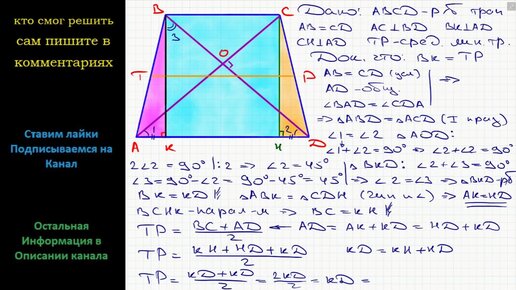 кто смог решить
сам пишите в
комментариях
Ставим лайки
Подписываемся на
Канал
Остальная
Информация в
Описании канала
B
C
3
O
T
P
1
2
A
K
H
D
Дано: ABCD-р/б трап
AB=CD AC⊥BD BK⊥AD
CH⊥AD TP-сред. лин. тр.
Док. что: BK=TP
AB=CD (усл)
AD-общ.
∠BAD=∠CDA
⇒ △ABD=△ACD (I приз)
∠1=∠2 △AOD:
∠1+∠2=90° ⇒ ∠2+∠2=90°
2∠2=90° |:2 ⇒ ∠2=45° △BKD: ∠2+∠3=90°
∠3=90°-∠2=90°-45°=45° ⇒ ∠2=∠3 ⇒ △BKD-рб
BK=KD △ABK=△CDH (гип и ∠) ⇒ AK=HD
BCHK-парал-м ⇒ BC=KH
TP=BC+AD/2 ← AD=AK+KD=HD+KD
TP=KH+HD+KD/2 KD=KH+HD
TP=KD+KD/2=2KD/2=KD=